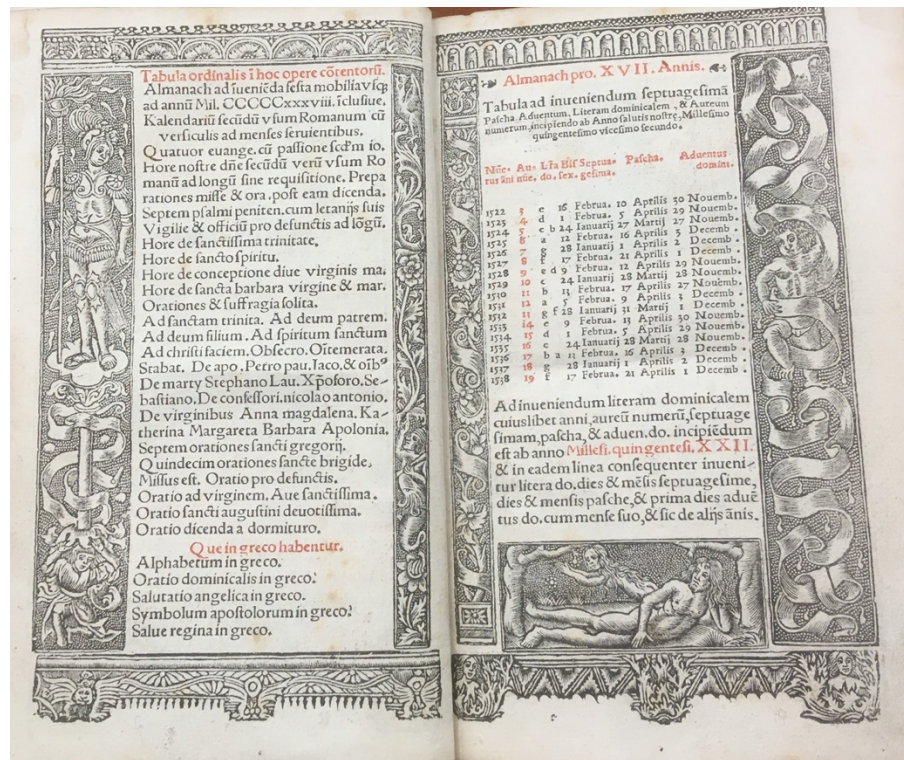 Tabula ordinalis ĩ hoc opere cõtentorũ.
Almanach ad ĩueniẽda festa mobilia vsqꝫ
ad annũ Mil. CCCCCxxxviii. ĩclusiue.
Kalendariũ secũdũ vsum Romanum cũ
versiculis ad menses seruientibus.
Quatuor euange. cũ passione scd̃m io.
Hore nostre dñe secũdũ verũ vsum Ro
manũ ad longũ sine requisitione. Prepa
rationes misse & ora. post eam dicenda.
Septem psalmi peniten. cum letanijs suis
Vigilie & officiũ pro defunctis ad lõgũ.
Hore de sanctissima trinitate.
Hore de sancto spiritu.
Hore de conceptione diue virginis ma.
Hore de sancta barbara virgine & mar.
Orationes & suffragia solita.
Ad sanctam trinita. Ad deum patrem.
Ad deum filium. Ad spiritum sanctum
Ad christi faciem. Obsecro. Oĩtemerata.
Stabat. De apo. Petro pau. Iaco, & oĩbꝰ
De marty Stephano Lau. Xp̃oforo. Se-
bastiano. De confessori. nicolao antonio.
De virginibus Anna magdalena. Ka-
therina Margareta Barbara Apolonia.
Septem orationes sancti gregorij.
Quindecim orationes sancte brigide.
Missus est. Oratio pro defunctis.
Oratio ad virginem. Aue sanctissima.
Oratio sancti augustini deuotissima.
Oratio dicenda a dormituro.
Que in greco habentur.
Alphabetum in greco.
Oratio dominicalis in greco.
Salutatio angelica in greco.
Symbolum apostolorum in greco.
Salue regina in greco.
Almanach pro. XVII. Annis.
Tabula ad inueniendum septuagesimã
Pascha, Aduentum, Literam dominicalem, & Aureum
numerum, incipiendo ab Anno salutis nostre, Millesimo
quingentesimo vicesimo secundo.
Nñe. Au. Lr̃a Bis Septua. Pascha. Aduentus
rus ãni nũe. do. sex. gesima. domini.
1522 3 e 16 Februa. 20 Aprilis 30 Nouemb.
1523 4 d 1 Februa. 5 Aprilis 29 Nouemb.
1524 5 c b 24 Ianuarij 27 Martij 27 Nouemb.
1525 6 a 12 Februa. 16 Aprilis 3 Decemb.
1526 7 g 28 Ianuarij 1 Aprilis 2 Decemb.
1527 8 f 17 Februa. 21 Aprilis 1 Decemb.
1528 9 e d 9 Februa. 12 Aprilis 29 Nouemb.
1529 10 c 24 Ianuarij 28 Martij 28 Nouemb.
1530 11 b 13 Februa. 17 Aprilis 27 Nouemb.
1531 12 a 5 Februa. 9 Aprilis 3 Decemb.
1532 g f 28 Ianuarij 31 Martij 1 Decemb.
1533 14 e 9 Februa. 13 Aprilis 30 Nouemb.
1534 15 d 1 Februa. 5 Aprilis 29 Nouemb.
1535 16 c 24 Ianuarij 28 Martij 28 Nouemb.
1536 17 b a 13 Februa. 16 Aprilis 3 Decemb.
1537 18 g 28 Ianuarij 1 Aprilis 2 Decemb.
1538 19 f 17 Februa. 21 Aprilis 1 Decemb.
Ad inueniendum literam dominicalem
cuiuslibet anni, aureũ numerũ, septuage
simam, pascha, & aduen. do. incipiẽdum
est ab anno Millesi. quingentesi. XXII.
& in eadem linea consequenter inueni-
tur litera do. dies & mẽsis septuagesime,
dies & mensis pasche, & prima dies aduẽ
tus do. cum mense suo, & sic de alijs ãnis.